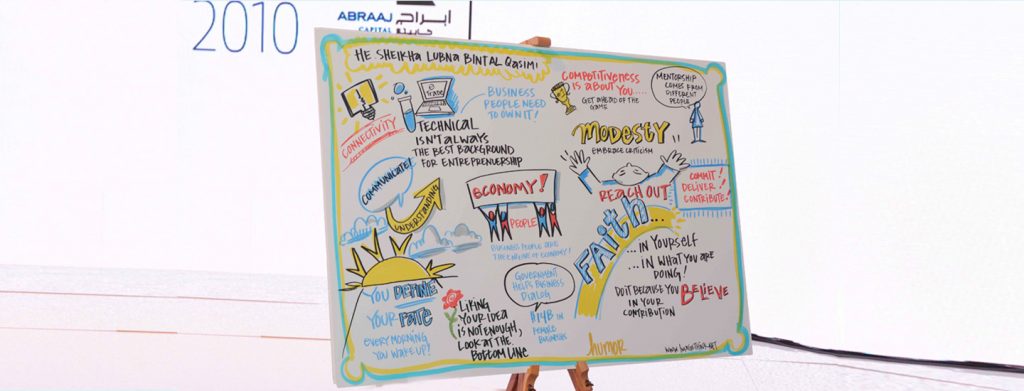 2010
ABRAAJ
CAPITAL
ابراج
كابيتال
HE SHEIKHA LUBNA BINT AL QASIMI
eTrade
CONNECTIVITY
BUSINESS
PEOPLE NEED
TO OWN IT!
TECHNICAL
ISN'T ALWAYS
THE BEST BACKGROUND
FOR ENTREPRENUERSHIP
COMPETITIVENESS
IS ABOUT YOU.....
GET AHEAD OF THE
GAME
MENTORSHIP
COMES FROM
DIFFERENT
PEOPLE
MODESTY
EMBRACE CRITICISM
COMMUNICATE!
UNDERSTANDING
ECONOMY!
PEOPLE
BUSINESS PEOPLE ARE
THE ENGINE OF ECONOMY!
REACH OUT
COMMIT!
DELIVER!
CONTRIBUTE!
FAITH...
...IN YOURSELF
...IN WHAT YOU ARE
DOING!
DO IT BECAUSE YOU BELIEVE
IN YOUR
CONTRIBUTION
YOU DEFINE
YOUR FATE
EVERY MORNING
YOU WAKE UP!
LIKING
YOUR IDEA
IS NOT ENOUGH,
LOOK AT THE
BOTTOM LINE
GOVERNMENT
HELPS BUSINESS
DIALOG
$14B IN
FEMALE
BUSINESS
humor